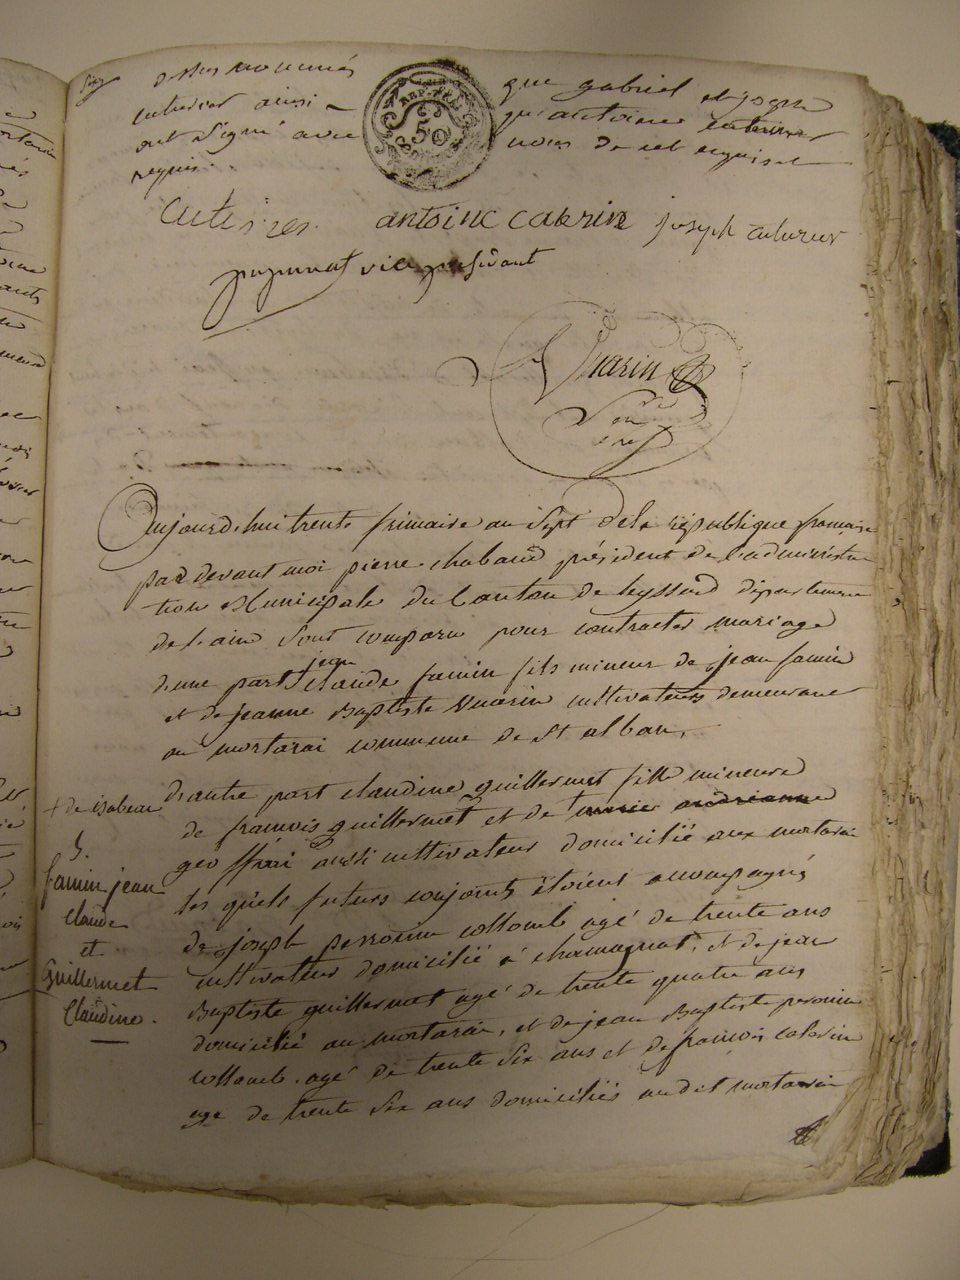 dessus nommés que gabriel et joseph
cuterier ainsi qu'antoine
ont signé avec nous de ce requis et
requis.
antoine caterin joseph
vice président
Vuarin
Aujourd'hui trente frimaire an sept de la république françoise
par devant moi pierre chaband président de l'administra
tion Municipale du Canton de leyssard département
de l'ain sont comparu pour contracter mariage
d'une part jean claude famin fils mineur de jean famin
et de jeanne Baptiste Vuarin cultivateurs demeurant
au mortarai commune de St alban,
d'autre part claudine guillermet fille mineure
de françois guillermet et de + marie andrianne
geoffrai aussi cultivateur domicilié aux mortarai
les quels futurs conjoints étoient accompagnés
de joseph perronin collomb agé de trente ans
cultivateur domicilié à chamagnat, et de jean
Baptiste guillermet agé de trente quatre ans
domicilié au mortarai, et de jean Baptiste peronin
collomb. agé de trente six ans et de françois caterin
agé de trente six ans domiciliés au dit mortarai
+ de isabeau
5.
famin jean
Claude
et
Guillermet
Claudine.